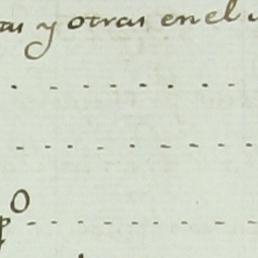 y otras en el
- - - - - - - -
- - - - - - - - -
po - - - - - - -